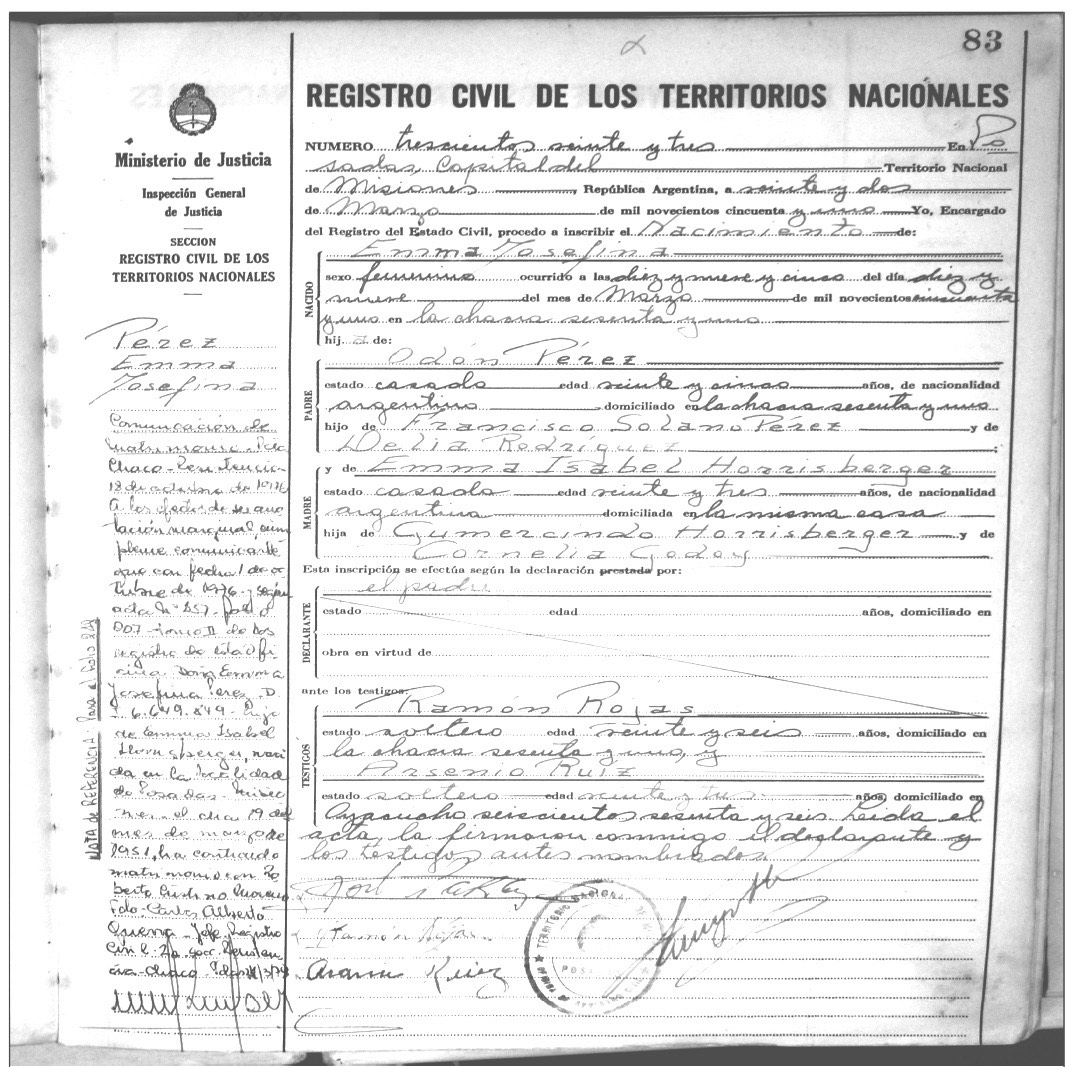 83
REGISTRO CIVIL DE LOS TERRITORIOS NACIONALES
Ministerio de Justicia
Inspección General
de Justicia
SECCION
REGISTRO CIVIL DE LOS
TERRITORIOS NACIONALES
Pérez
Emma
Josefina
Comunicación de
matrimonio. Pcia
Chaco-Resistencia
18 de octubre de 1976
A los efectos de su ano
tación marginal, cúm
pleme comunicarle
que con fecha 1 de oc
tubre de 1976 y según
acta Nº 857 folio
007 tomo II de los
registro de esta ofi
cina Doña Emma
Josefina Perez D.
6.649.849- hija
de Emma Isabel
Horrisberger, naci
da en la localidad
de Posadas- Misio
nes- el día 19 del
mes de marzo de
1951, ha contraido
matrimonio con Ro
berto Moreno
Fdo- Carlos Alberto
Jefe Registro
Civil 2a secc. Resisten
cia-Chaco-
NOTA de REFERENCIA: Pasa al folio
NUMERO trescientos veinte y tres En Po
sadas, Capital del Territorio Nacional
de Misiones, República Argentina, a veinte y dos
de Marzo de mil novecientos cincuenta y uno Yo, Encargado
del Registro del Estado Civil, procedo a inscribir el Nacimiento de:
NACIDO
Emma Josefina
sexo femenino ocurrido a las diez y nueve y cinco del día diez y
nueve del mes de Marzo de mil novecientos cincuenta
y uno en la chacra sesenta y uno
hij a de:
PADRE
Odón Pérez
estado casado edad veinte y cinco años, de nacionalidad
argentino domiciliado en la chacra sesenta y uno
hijo de Francisco Solano Perez y de
Delia Rodríguez;
MADRE
y de Emma Isabel Horrisberger
estado casada edad veinte y tres años, de nacionalidad
argentina domiciliada en la misma casa
hija de Gumercindo Horrisberger y de
Cornelia Godoy
Esta inscripción se efectúa según la declaración prestada por:
DECLARANTE
el padre
estado edad años, domiciliado en
obra en virtud de
ante los testigos,
TESTIGOS
Ramon Rojas
estado soltero edad veinte y seis años, domiciliado en
la chacra sesenta y uno, y
Arsenio Ruiz
estado soltero edad veinte y tres años, domiciliado en
Ayacucho seiscientos sesenta y seis Leida el
acta, la firmaron conmigo el declarante y
los testigos antes nombrados.
Ramón Rojas
Ruiz
TERRITORIO NACIONAL DE
POSADAS